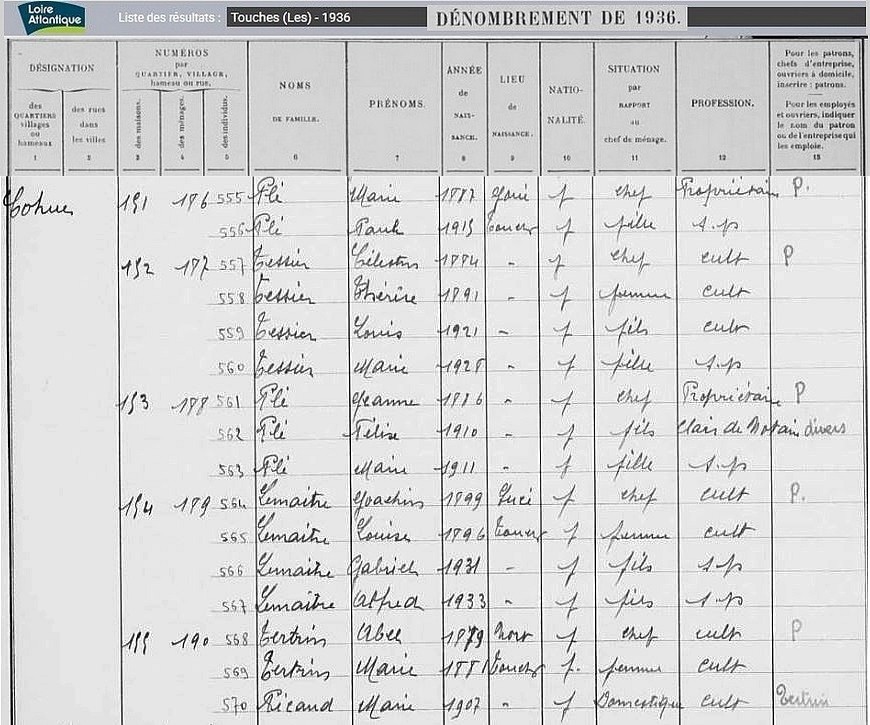 Loire Atlantique
Liste des résultats : Touches (Les) - 1936
DÉNOMBREMENT DE 1936.
DÉSIGNATION
des QUARTIERS villages ou hameaux
des rues dans les villes
NUMÉROS par QUARTIER, VILLAGE, hameau ou rue.
des maisons.
des ménages.
des individus.
NOMS DE FAMILLE.
PRÉNOMS.
ANNÉE de NAISSANCE.
LIEU de NAISSANCE.
NATIONALITÉ.
SITUATION par RAPPORT au chef de ménage.
PROFESSION.
Pour les patrons, chefs d'entreprise, ouvriers à domicile, inscrire : patrons.
Pour les employés et ouvriers, indiquer le nom du patron ou de l'entreprise qui les emploie.
1 2 3 4 5 6 7 8 9 10 11 12 13
191 186 555 Plé Marie 1882 f chef Propriétaire P.
556 Plé Paule 1915 Touches f fille s.p
192 187 557 Tessier Célestin 1884 " f chef cult P
558 Tessier Thérèse 1891 " f femme cult
559 Tessier Louis 1921 " f fils cult
560 Tessier Marie 1928 " f fille s.p
193 188 561 Plé Jeanne 1886 " f chef Propriétaire P
562 Plé Félix 1910 " f fils Clerc de Notaire divers
563 Plé Marie 1911 " f fille s.p
194 189 564 Lemaitre Joachim 1899 f chef cult P.
565 Lemaitre Louise 1896 Touches f femme cult
566 Lemaitre Gabriel 1931 " f fils s.p
567 Lemaitre Alfred 1933 " f fils s.p
195 190 568 Tertrin Abel 1879 Nort f chef cult P
569 Tertrin Marie 1881 Touches f. femme cult
570 Ricaud Marie 1907 " f Domestique cult Tertrin